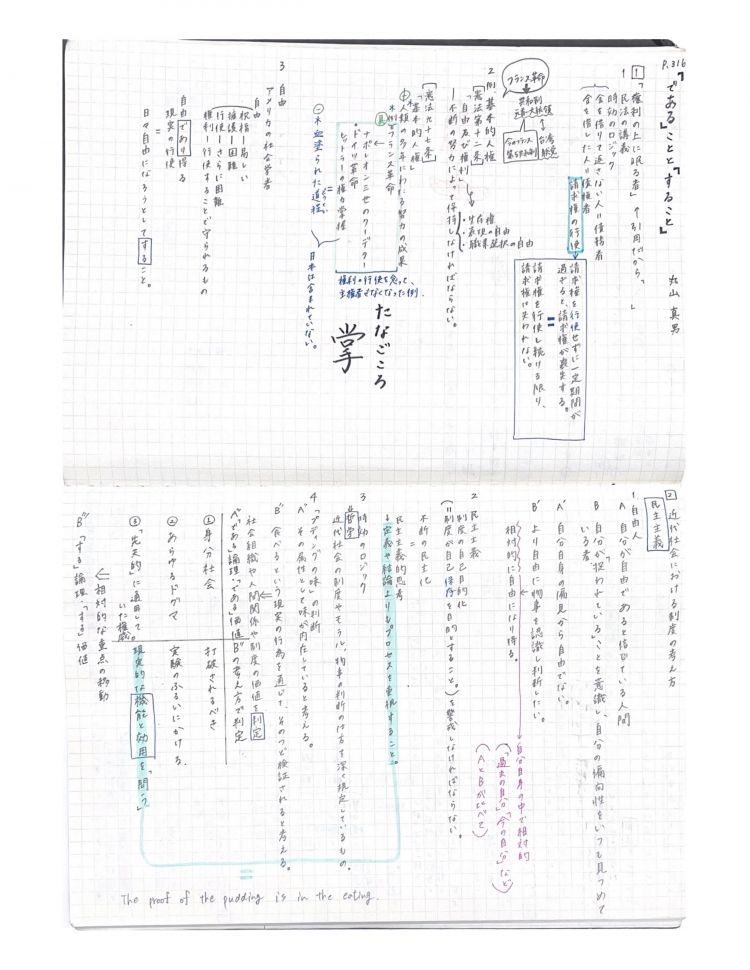 P.316
「である」ことと「する」こと」 丸山 真男
1 「権利の上に眠る者」 ↑引用だから「 」
1 民法の講義
時効のロジック
金を借りて返さない人＝債務者
金を借りた人＝債権者
請求権の行使
請求権を行使せずに一定期間が
過ぎると、請求権が喪失する。
＝
請求権を行使し続ける限り、
請求権は失われない。
フランス革命
共和制
王政・大統領
今のフランス
第5共和制
2 例 基本的人権
「憲法第十二条」
自由及び権利
・生存権
・表現の自由
・職業選択の自由
ー不断の努力によって保持しなければならない。
「憲法九十七条」
「基本的人権」
人類の多年にわたる努力の成果
例 フランス革命
・ドイツ革命
ナポレオン三世のクーデター
ヒットラーの権力掌握
権利の行使を怠って、
主権者でなくなった例。
血塗られた道程
日本は含まれていない。
たなごころ
掌
3 自由
アメリカの社会学者
自由
祝福ー易しい
擁護ー困難
行使ーさらに困難
権利ー行使することで守られるもの
自由であり得る
現実の行使
＝
日々自由になろうとしてすること。
2 近代社会における制度の考え方
民主主義
1 自由人
A 自分が自由であると信じている人間
B 自分が「捉われている」ことを意識し、自分の偏向性をいつも見つめて
いる者
A' 自分自身の偏見から自由でない。
B' より自由に物事を認識し判断したい。
相対的に自由になり得る。
自分自身の中で相対的
(「過去の自分」「今の自分」など)
(AとBが比べて)
2 民主主義
制度の自己目的化
(＝制度が自己保存を目的とすること。)を警戒しなければならない。
不断の民主化
＝
民主主義的思考
定義や結論よりもプロセスを重視すること。
3 時効のロジック
哲学
近代社会の制度やモラル、物事の判断の仕方を深く規定しているもの。
4 「プディングの味」の判断
A" その属性として味が内在していると考える。
B" 食べるという現実の行為を通じて、そのつど検証されると考える。
社会組織や人間関係や制度の価値を判定
A"「である」論理・「である」価値 B"の考え方で判定
① 身分社会 打破されるべき
② あらゆるドグマ 実験のふるいにかける。
③ 「先天的」に通用して
いた権威 現実的な機能と効用を「問う」
⇐相対的な重点の移動
B‴「する」論理・「する」価値
The proof of the pudding is in the eating.